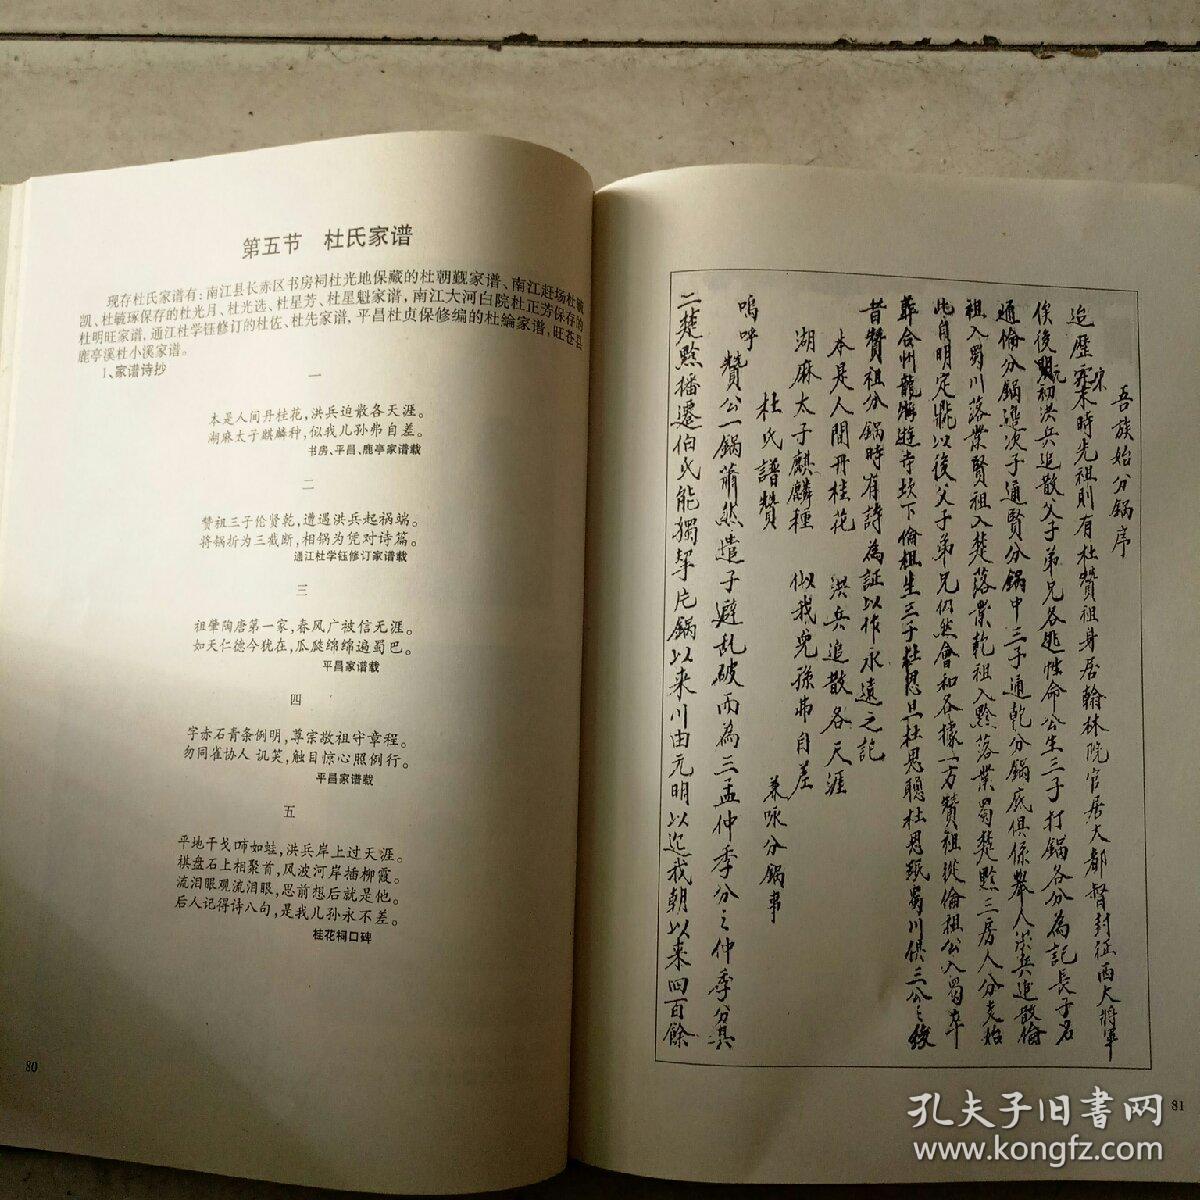 第五节 杜氏家谱
现存杜氏家谱有：南江县长赤区书房祠杜光地保藏的杜朝觐家谱、南江赶场杜毓
凯、杜毓琢保存的杜光月、杜光选、杜星芳、杜星魁家谱，南江大河白院杜正芳保存的
杜明旺家谱，通江杜学钰修订的杜佐、杜先家谱，平昌杜贞保修编的杜綸家谱，旺苍县
鹿亭溪杜小溪家谱。
1、家谱诗抄
一
本是人间丹桂花，洪兵迫散各天涯。
湖麻太子麒麟种，似我儿孙弗自差。
书房、平昌、鹿亭家谱载
二
赞祖三子伦贤乾，遭遇洪兵起祸端。
将锅折为三截断，相锅为凭对诗篇。
通江杜学钰修订家谱载
三
祖肇陶唐第一家，春风广被信无涯。
如天仁德今犹在，瓜瓞绵绵遍蜀巴。
平昌家谱载
四
字赤石青条例明，尊宗敬祖守章程。
勿同雀协人讥笑，触目惊心照例行。
平昌家谱载
五
平地干戈啼如蛙，洪兵岸上过天涯。
棋盘石上相聚首，风波河岸插柳霞。
流泪眼观流泪眼，思前想后就是他。
后人记得诗八句，是我儿孙永不差。
桂花祠口碑
80
吾族始分锅序
追歷宋末時先祖則有杜贊祖身居翰林院官居大都督封征西大將軍
侯後元初洪兵追散父子弟兄各逃性命公生三子打鍋各分為記長子名
通倫分鍋邊次子通賢分鍋中三子通乾分鍋底俱係舉人洪兵追散倫
祖入蜀川落業賢祖入楚落業乾祖入黔落業蜀楚黔三房人分支始
此自明定鼎以後父子弟兄仍然會和各據一方贊祖從倫祖公入蜀卒
葬合州龍游寺坎下倫祖生三子杜思旦杜思聰杜思 蜀川俱三公之後
昔贊祖分鍋時有詩為証以作永遠之記
本是人間丹桂花 洪兵追散各天涯
湖麻太子麒麟種 似我兒孫弗自差
杜氏譜贊 兼咏分鍋事
嗚呼贊公一鍋 然遣子避乱破而為三孟仲季分之仲季分其
二楚黔播遷伯氏能獨挈片鍋以来川由元明以迄我朝以来四百餘
81
孔夫子旧书网
www.kongfz.com